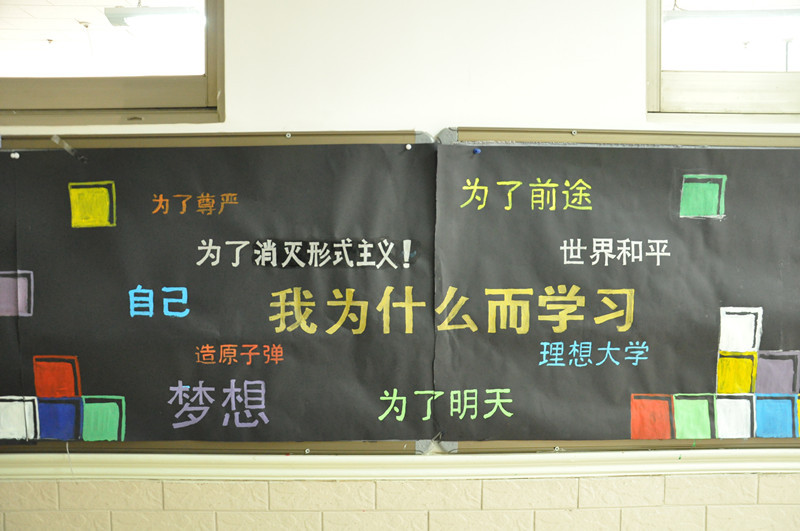 为了尊严
为了前途
为了消灭形式主义！
世界和平
自己
我为什么而学习
造原子弹
理想大学
梦想
为了明天